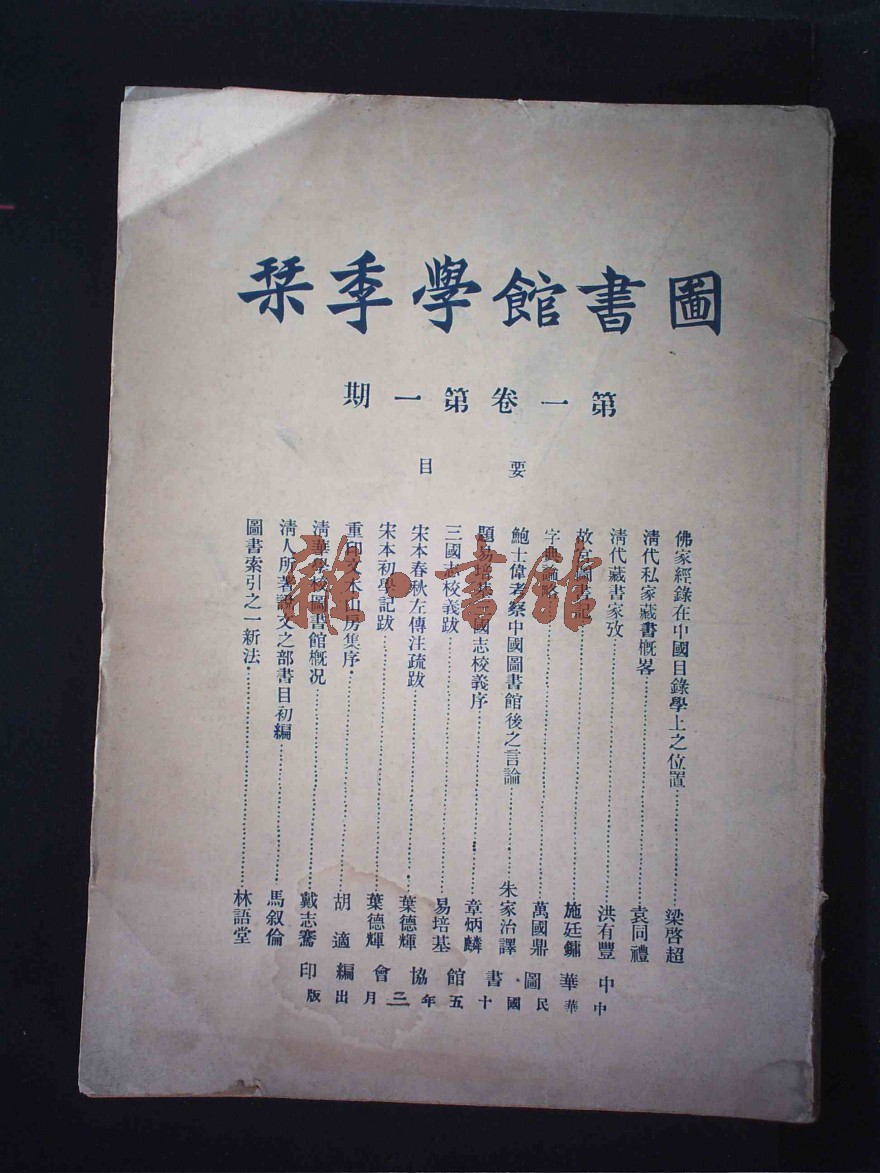 圖書館學季栞
第一卷第一期
要目
佛家經錄在中國目錄學上之位置 梁啓超
清代私家藏書概畧 袁同禮
清代藏書家攷 洪有豐
故宮圖書記 施廷鏞
字典論略 萬國鼎
鮑士偉考察中國圖書館後之言論 朱家治譯
題易培基三國志校義序 章炳麟
三國志校義跋 易培基
宋本春秋左傳注疏跋 葉德輝
宋本初學記跋 葉德輝
重印文木山房集序 胡適
清華學校圖書館概况 戴志騫
清人所著說文之部書目初編 馬叙倫
圖書索引之一新法 林語堂
中華圖書館協會編印
中華民國十五年三月出版
雜·書館